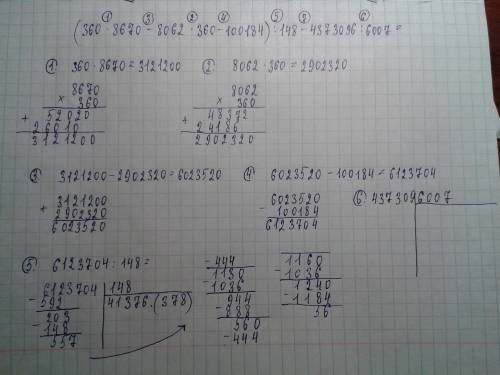 ① ③ ② ④ ⑤ ⑦ ⑥
(360 · 8670 - 8062 · 360 - 100184) : 148 - 4373096 : 6007 =
① 360 · 8670 = 3121200
8670
× 360
+ 52020
26010
3121200
② 8062 · 360 = 2902320
8062
× 360
+ 48372
24186
2902320
③ 3121200 - 2902320 = 6023520
+ 3121200
2902320
6023520
④ 6023520 - 100184 = 6123704
- 6023520
100184
6123704
⑤ 6123704 : 148 =
- 6123704 148
592 41376.(378)
- 203
148
557
- 444
1130
- 1036
944
- 888
560
- 444
1160
- 1036
1240
- 1184
56
⑥ 4373096 6007